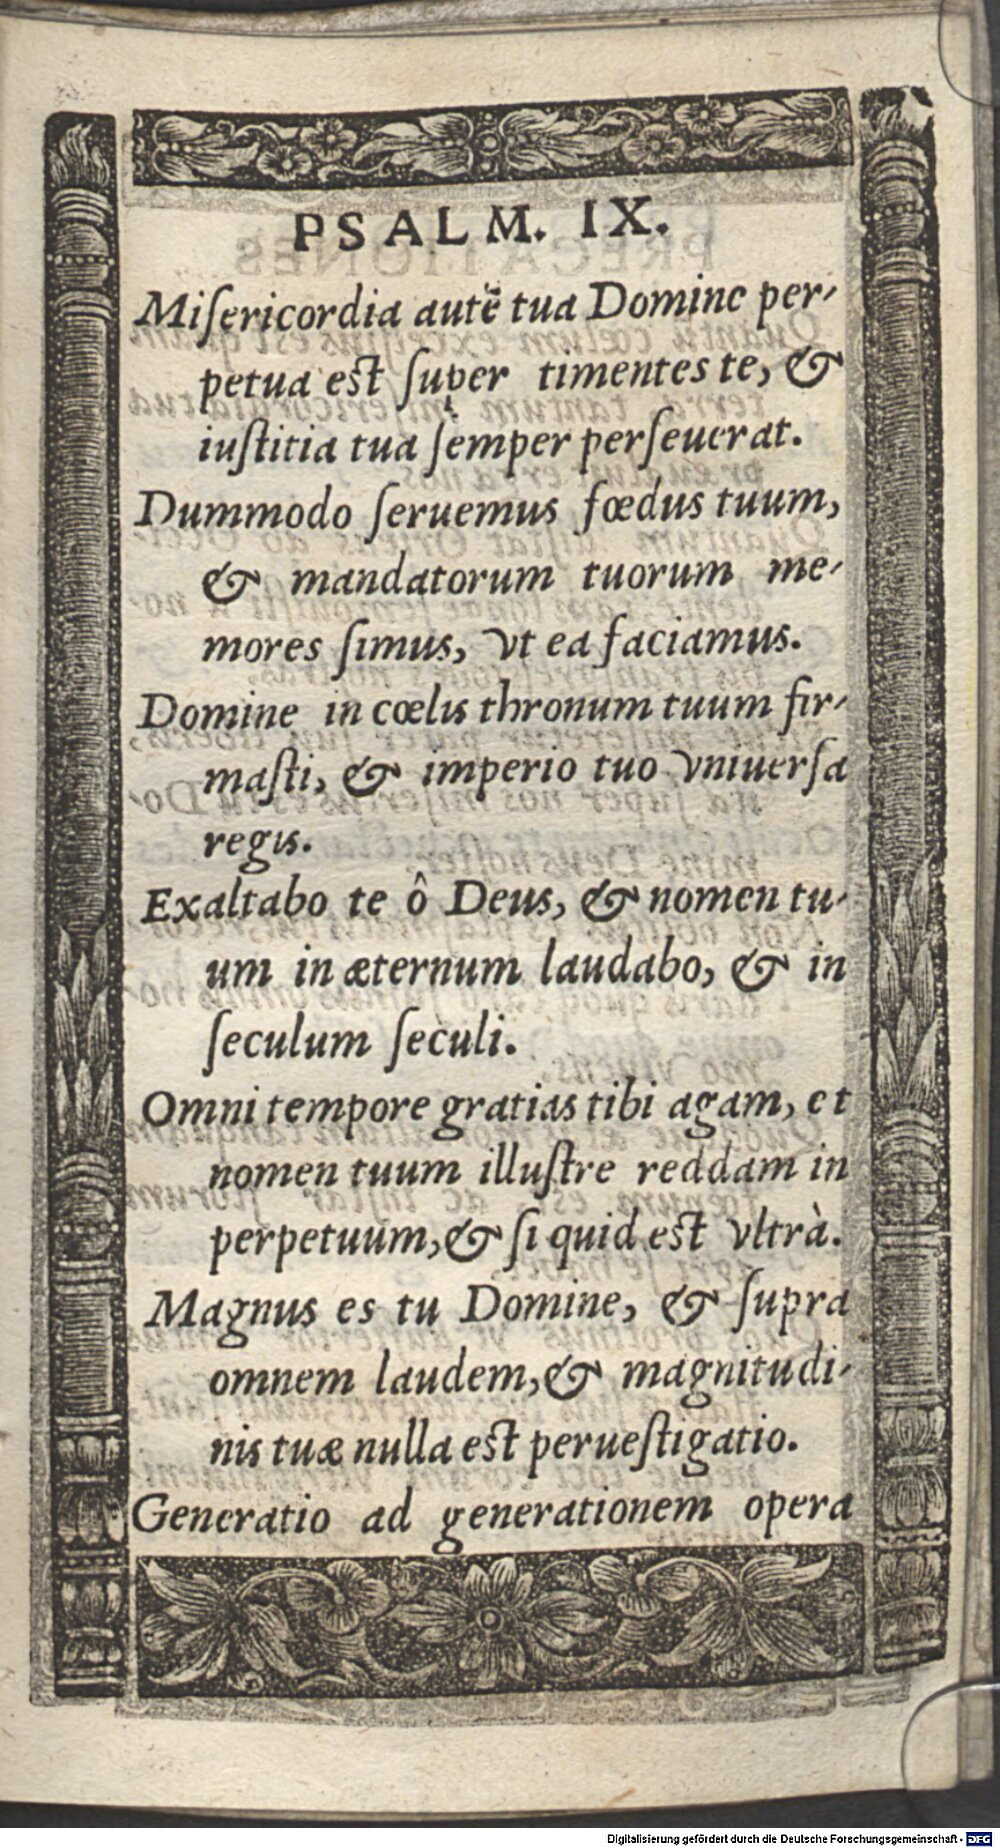 PSALM. IX.
Miſericordia autẽ tua Domine per-
petua est ſuper timentes te, &
iuſtitia tua ſemper perſeuerat.
Dummodo ſeruemus fœdus tuum,
& mandatorum tuorum me-
mores ſimus, vt ea faciamus.
Domine in cœlis thronum tuum fir-
maſti, & imperio tuo vniuerſa
regis.
Exaltabo te ô Deus, & nomen tu-
um in æternum laudabo, & in
ſeculum ſeculi.
Omni tempore gratias tibi agam, et
nomen tuum illuſtre reddam in
perpetuum, & ſi quid est vltrà.
Magnus es tu Domine, & ſupra
omnem laudem, & magnitudi-
nis tuæ nulla est perueſtigatio.
Generatio ad generationem opera
Digitalisierung gefördert durch die Deutsche Forschungsgemeinschaft - DFG